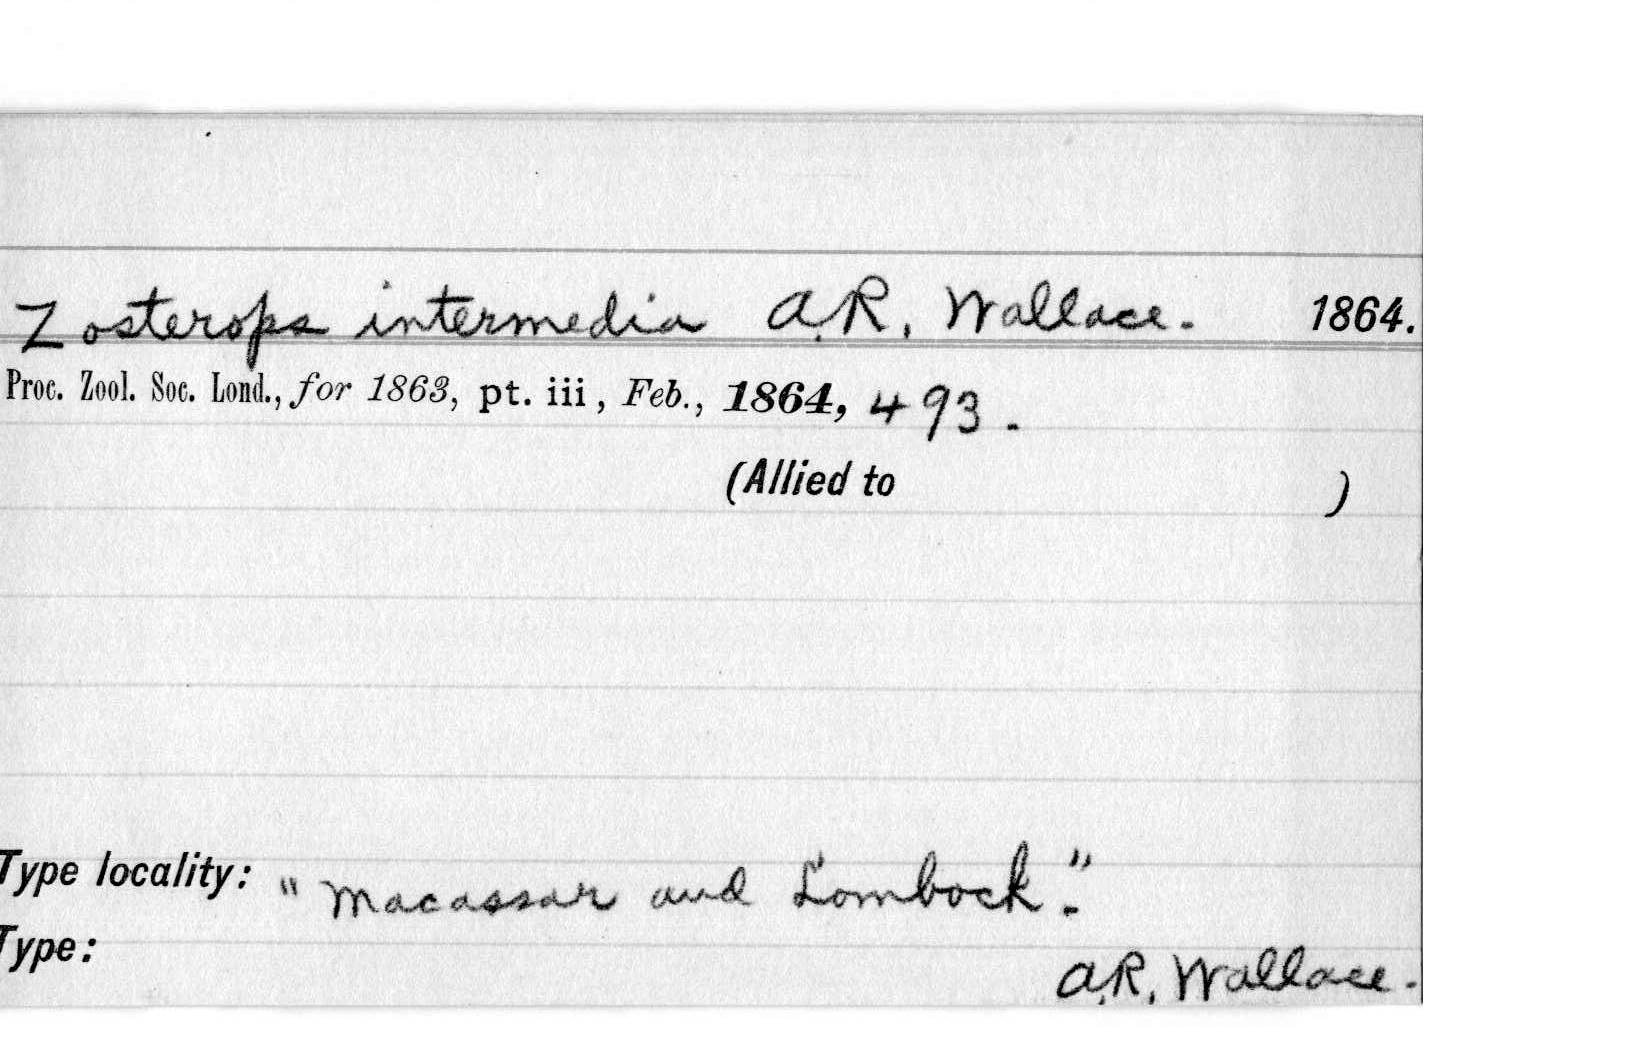 Zosterops intermedia A.R. Wallace. 1864.
Proc. Zool. Soc. Lond., for 1863, pt. iii, Feb., 1864, 493.
(Allied to )
Type locality: "Macassar and Lombock."
Type:
A.R. Wallace.